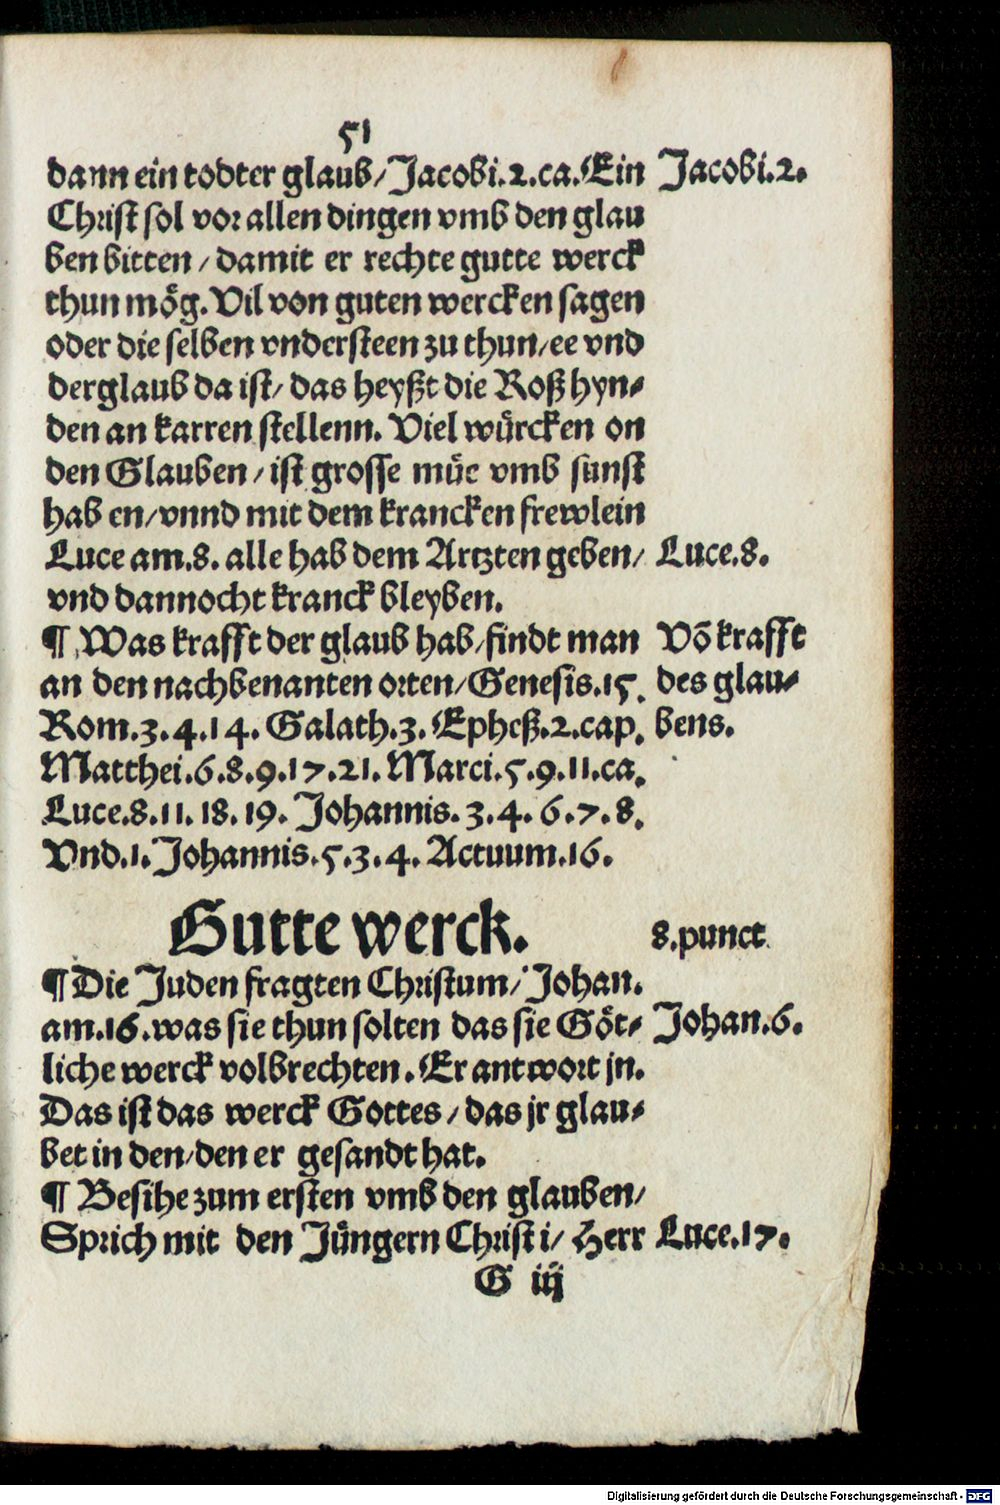 51
dann ein todter glaub/Jacobi.2.ca.Ein Jacobi.2.
Christ sol vor allen dingen vmb den glau
ben bitten/damit er rechte gutte werck
thun mög.Vil von guten wercken sagen
oder die selben vndersteen zu thun/ee vnd
der glaub da ist/das heyßt die Roß hyn⸗
den an karren stellenn. Viel würcken on
den Glauben/ist grosse müe vmb sunst
hab en/vnnd mit dem krancken frewlein
Luce am.8. alle hab dem Artzten geben/ Luce.8.
vnd dannocht kranck bleyben.
¶ Was krafft der glaub hab/findt man Võ krafft
an den nachbenanten orten/Genesis.15. des glau⸗
Rom.3.4.14. Galath.3. Epheß.2.cap. bens.
Matthei.6.8.9.17.21. Marci.5.9.11.ca.
Luce.8.11.18.19. Johannis.3.4.6.7.8.
Vnd.1.Johannis.5.3.4. Actuum.16.
Gutte werck. 8.punct
¶ Die Juden fragten Christum/Johan.
am.16.was sie thun solten das sie Göt⸗ Johan.6.
liche werck volbrechten.Er antwort jn.
Das ist das werck Gottes/das jr glau⸗
bet in den/den er gesandt hat.
¶ Besihe zum ersten vmb den glauben/
Sprich mit den Jüngern Christi/Herr Luce.17.
G iij
Digitalisierung gefördert durch die Deutsche Forschungsgemeinschaft - DFG